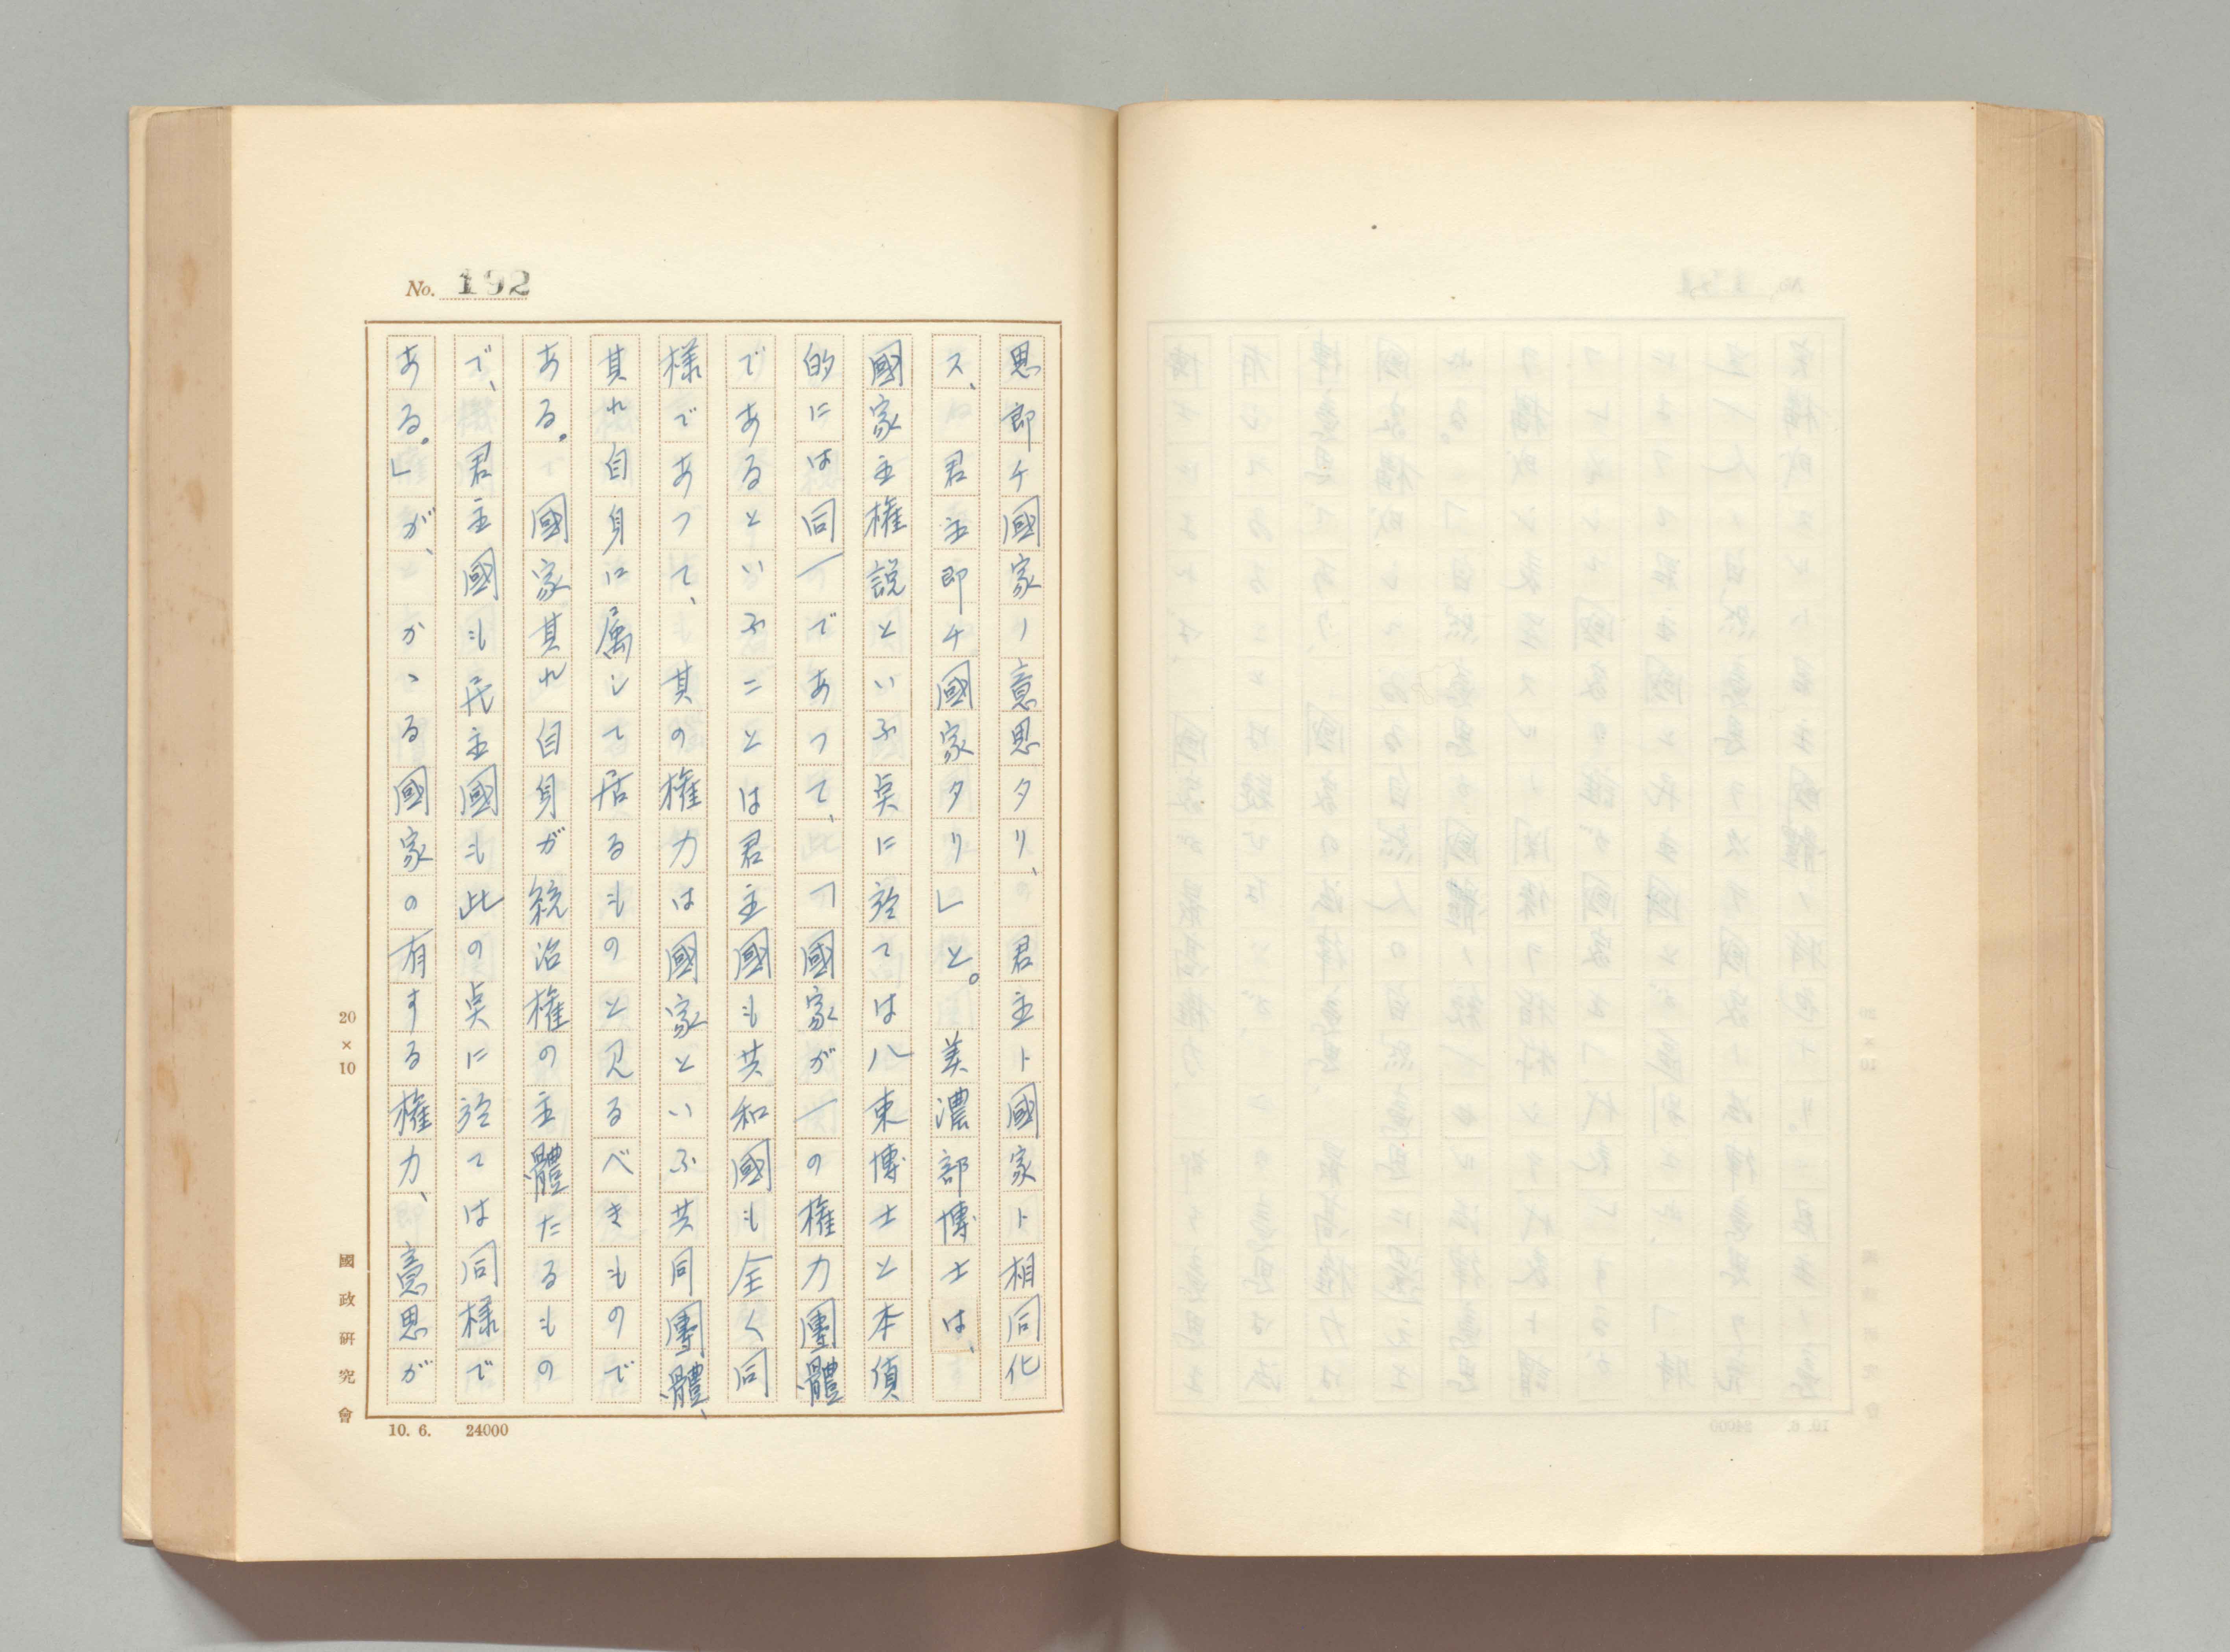 No. 192
思即チ國家ノ意思タリ、君主ト國家ト相同化
ス、君主即チ國家タリ」と。美濃部博士は、
國家主権説といふ点に於ては八束博士と本質
的には同一であつて、「國家が一の権力團體
であるといふことは君主國も共和國も全く同
様であつて、其の権力は國家といふ共同團體、
其れ自身に属して居るものと見るべきもので
ある。國家其れ自身が統治権の主體たるもの
で、君主國も民主國も此の点に於ては同様で
ある。」が、かゝる國家の有する権力、意思が
20×10
國政研究會
10. 6. 24000